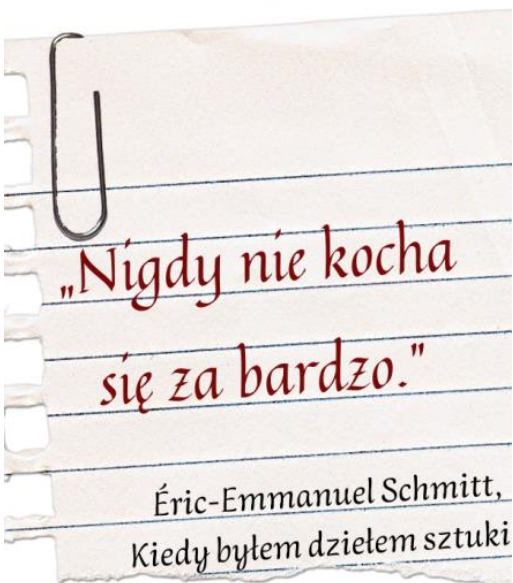 „Nigdy nie kocha
się za bardzo."
Éric-Emmanuel Schmitt,
Kiedy byłem dziełem sztuki